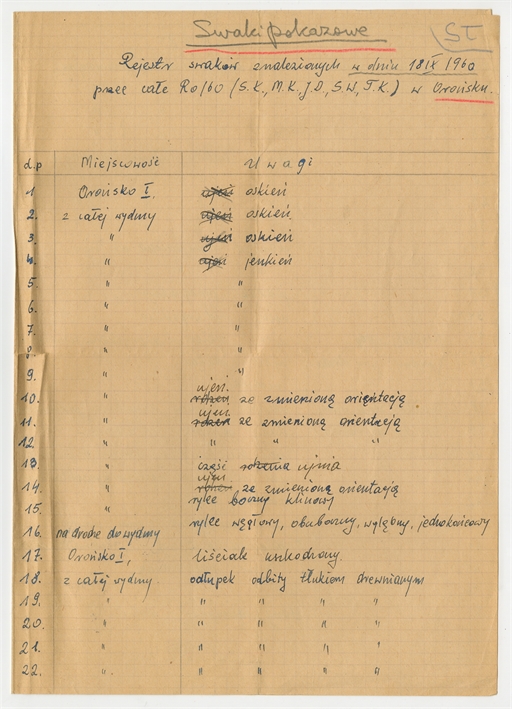 Swaki pokazowe ST
Rejestr swaków znalezionych w dniu 18 IX 1960
przez całe Ro/60 (S.K., M.K., J.D., S.W., T.K.) w Orońsku.
d.p Miejscowość Uwagi
1. Orońsko I, ujeń oskień
2. z całej wydmy ujeń oskień
3. " ujeń oskień
4. " ujeń jenkień
5. " "
6. " "
7. " "
8. " "
9. " "
ujeń.
10. " rdzeń ze zmienioną orientacją
ujeń.
11. " rdzeń ze zmienioną orientacją
12. " " " "
13. " część rdzenia ujnia
ujeń
14. " rdzeń ze zmienioną orientacją
15. " rylec boczny klinowy
16. na drodze do wydmy rylec węgłowy, obuboczny, wgłębny, jednokońcowy
17. Orońsko I, liściak uszkodzony
18. z całej wydmy odłupek odbity tłukiem drewnianym
19. " " " " "
20. " " " " "
21. " " " " "
22. " " " " "